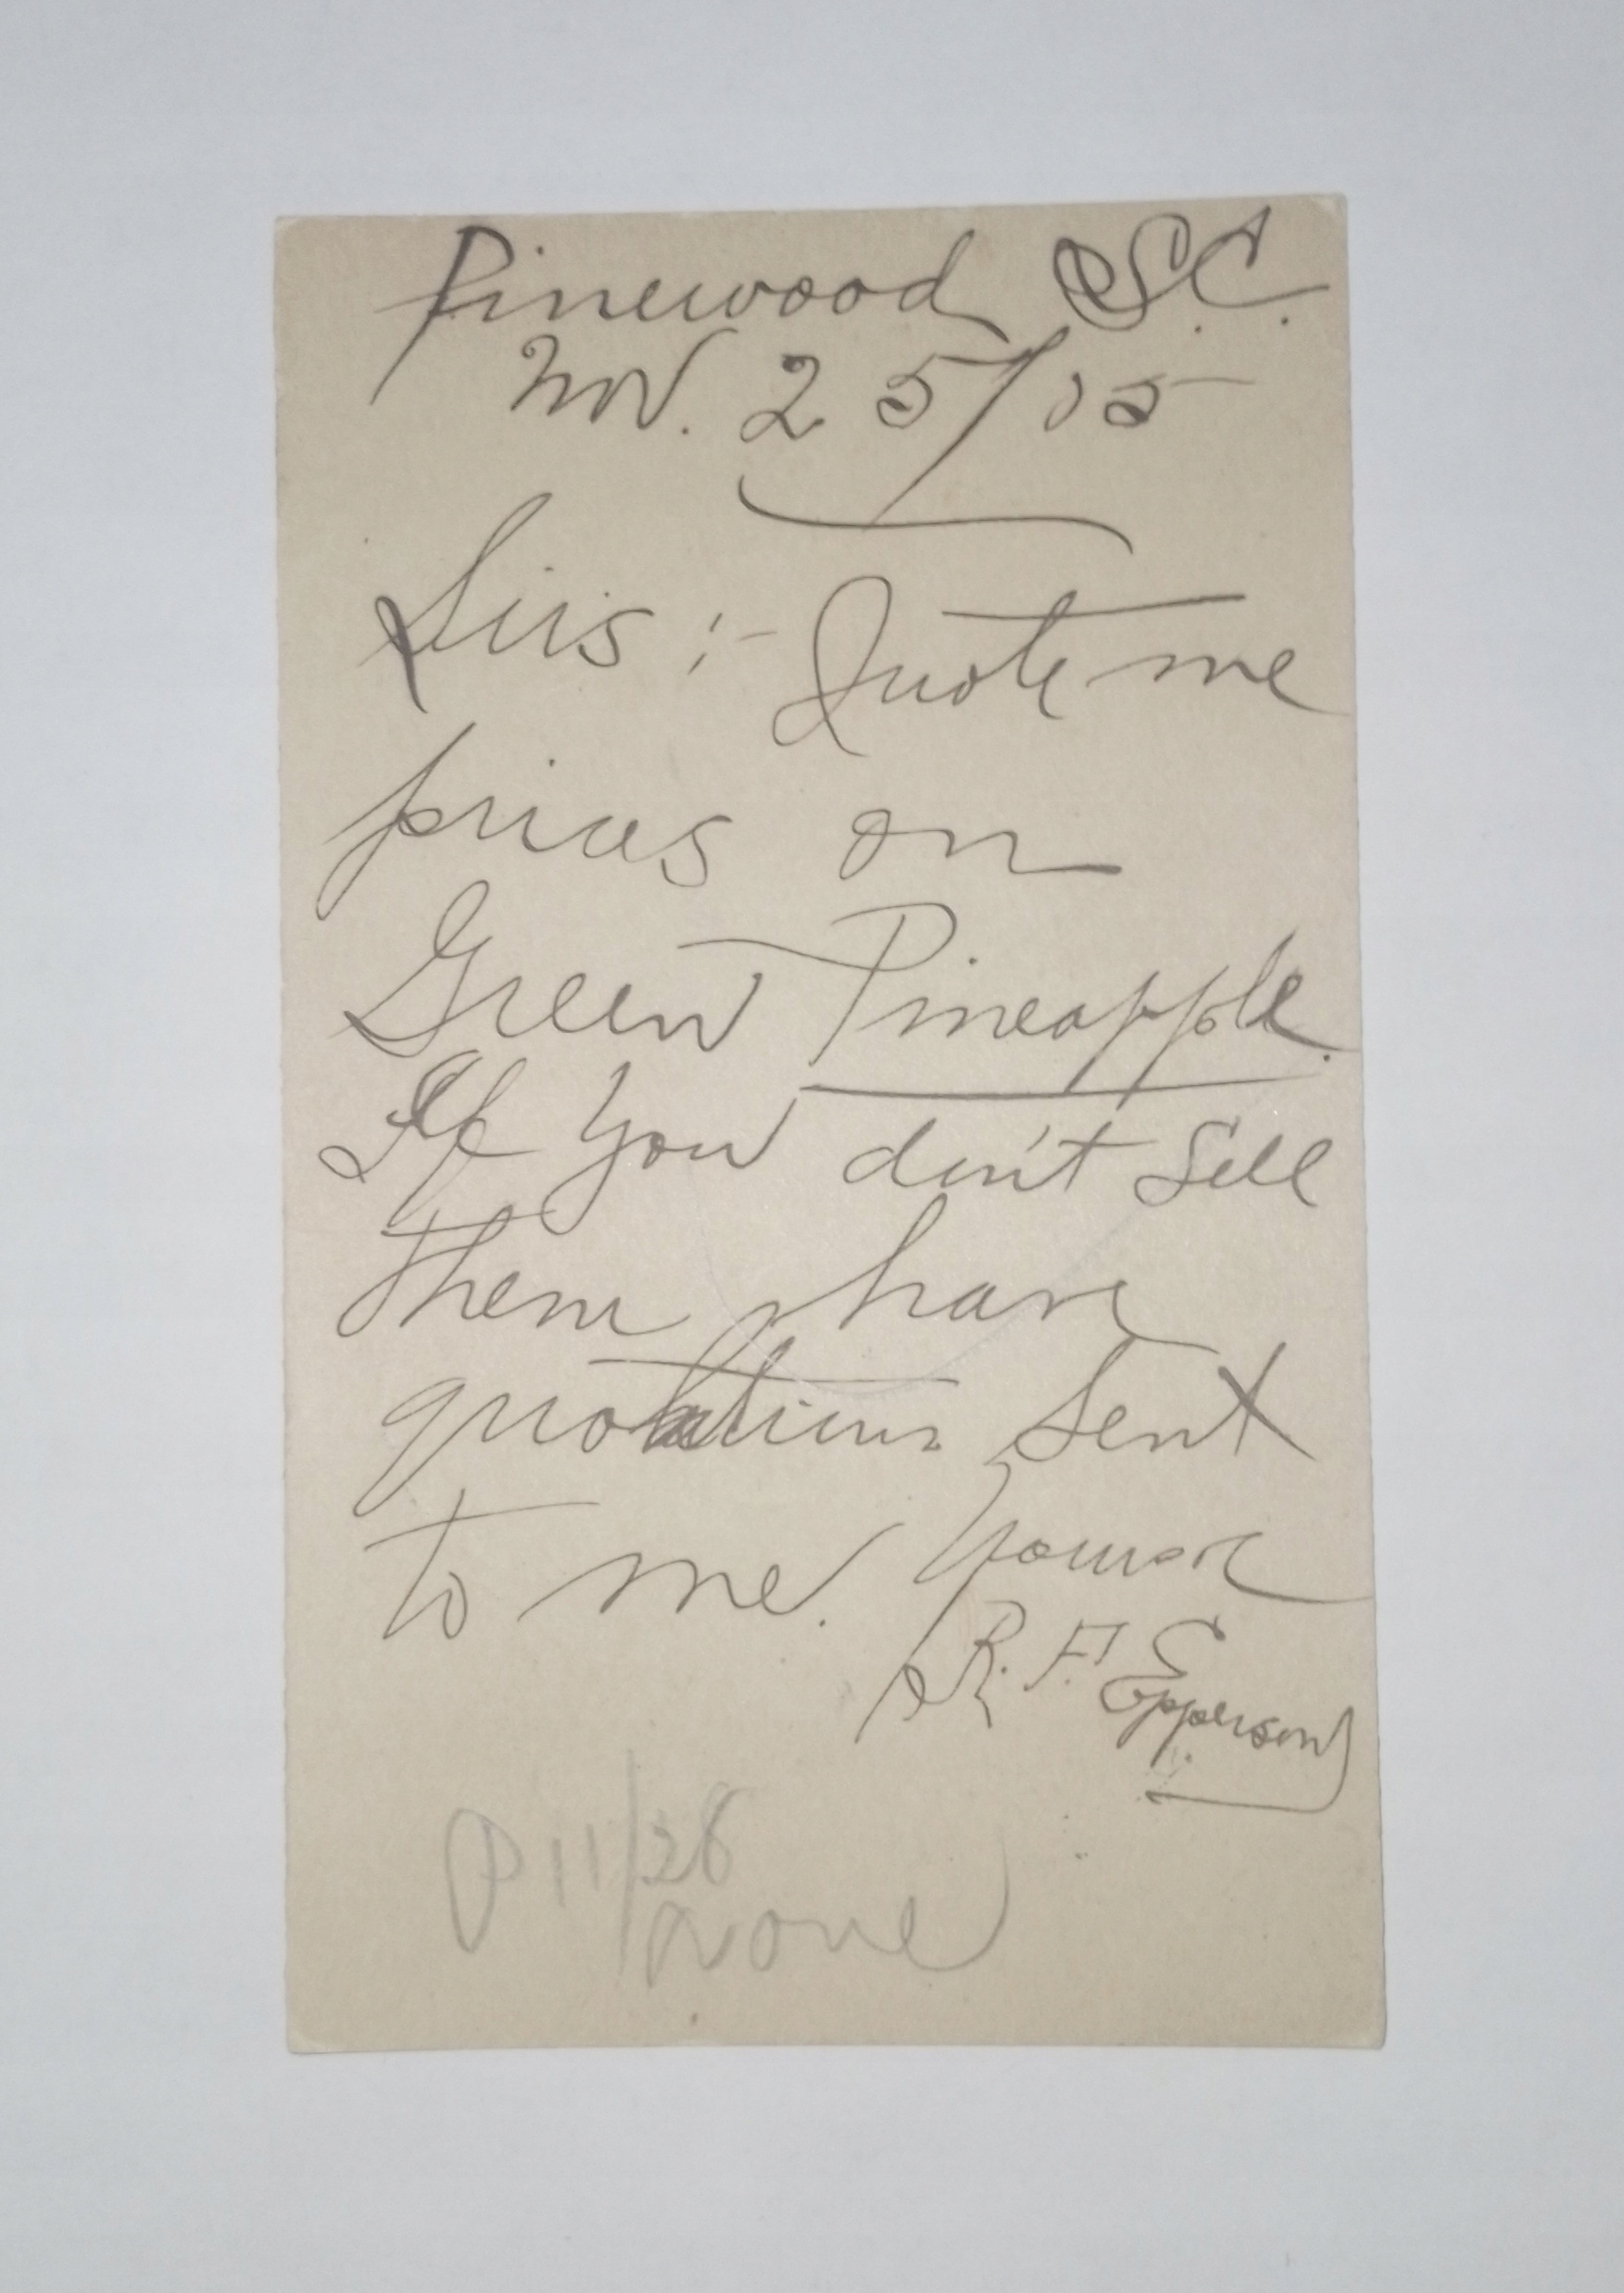 Pinewood S.C.
Nov. 25/05
Sirs :- Quote me
prices on
Green Pineapple.
If you don't sell
them have
quotations sent
to me. Yours &c
R. F. Epperson
P 11/28
None